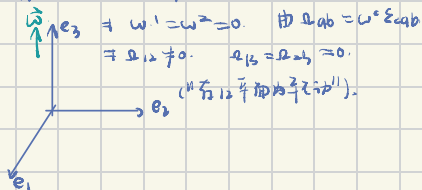 ω⃗
e₃ ⇒ ω¹ = ω² = 0. 由 Ωab = ωᶜ εcab
⇒ Ω₁₂ ≠ 0. Ω₁₃ = Ω₂₃ = 0.
12平面内 动").
e₂
e₁